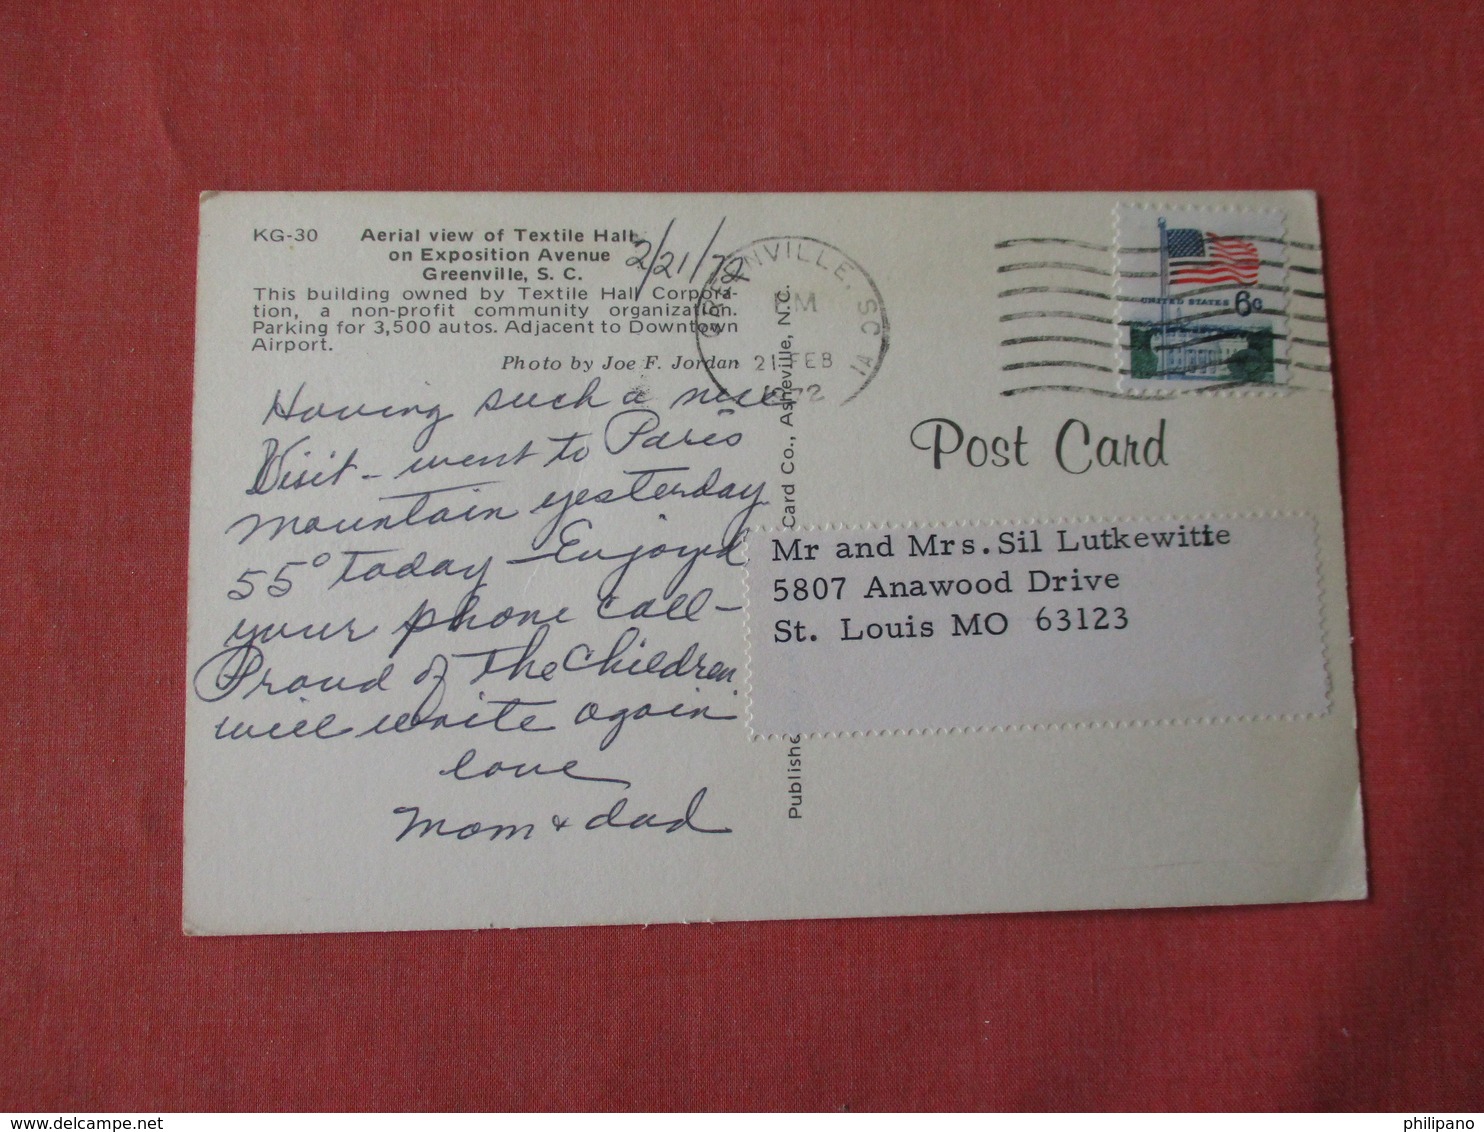 KG-30 Aerial view of Textile Hall
on Exposition Avenue
Greenville, S. C.
This building owned by Textile Hall Corpora-
tion, a non-profit community organization.
Parking for 3,500 autos. Adjacent to Downtown
Airport.
Photo by Joe F. Jordan
2/21/72
Having such a nice
Visit - went to Paris
Mountain yesterday
55° today - Enjoyed
your phone call -
Proud of the Children
will write again
love
Mom & dad
GREENVILLE, SC
PM
21 FEB
1972
UNITED STATES 6c
Post Card
Mr and Mrs. Sil Lutkewitte
5807 Anawood Drive
St. Louis MO 63123
Publishe
Card Co., Asheville, N.C.
philipano